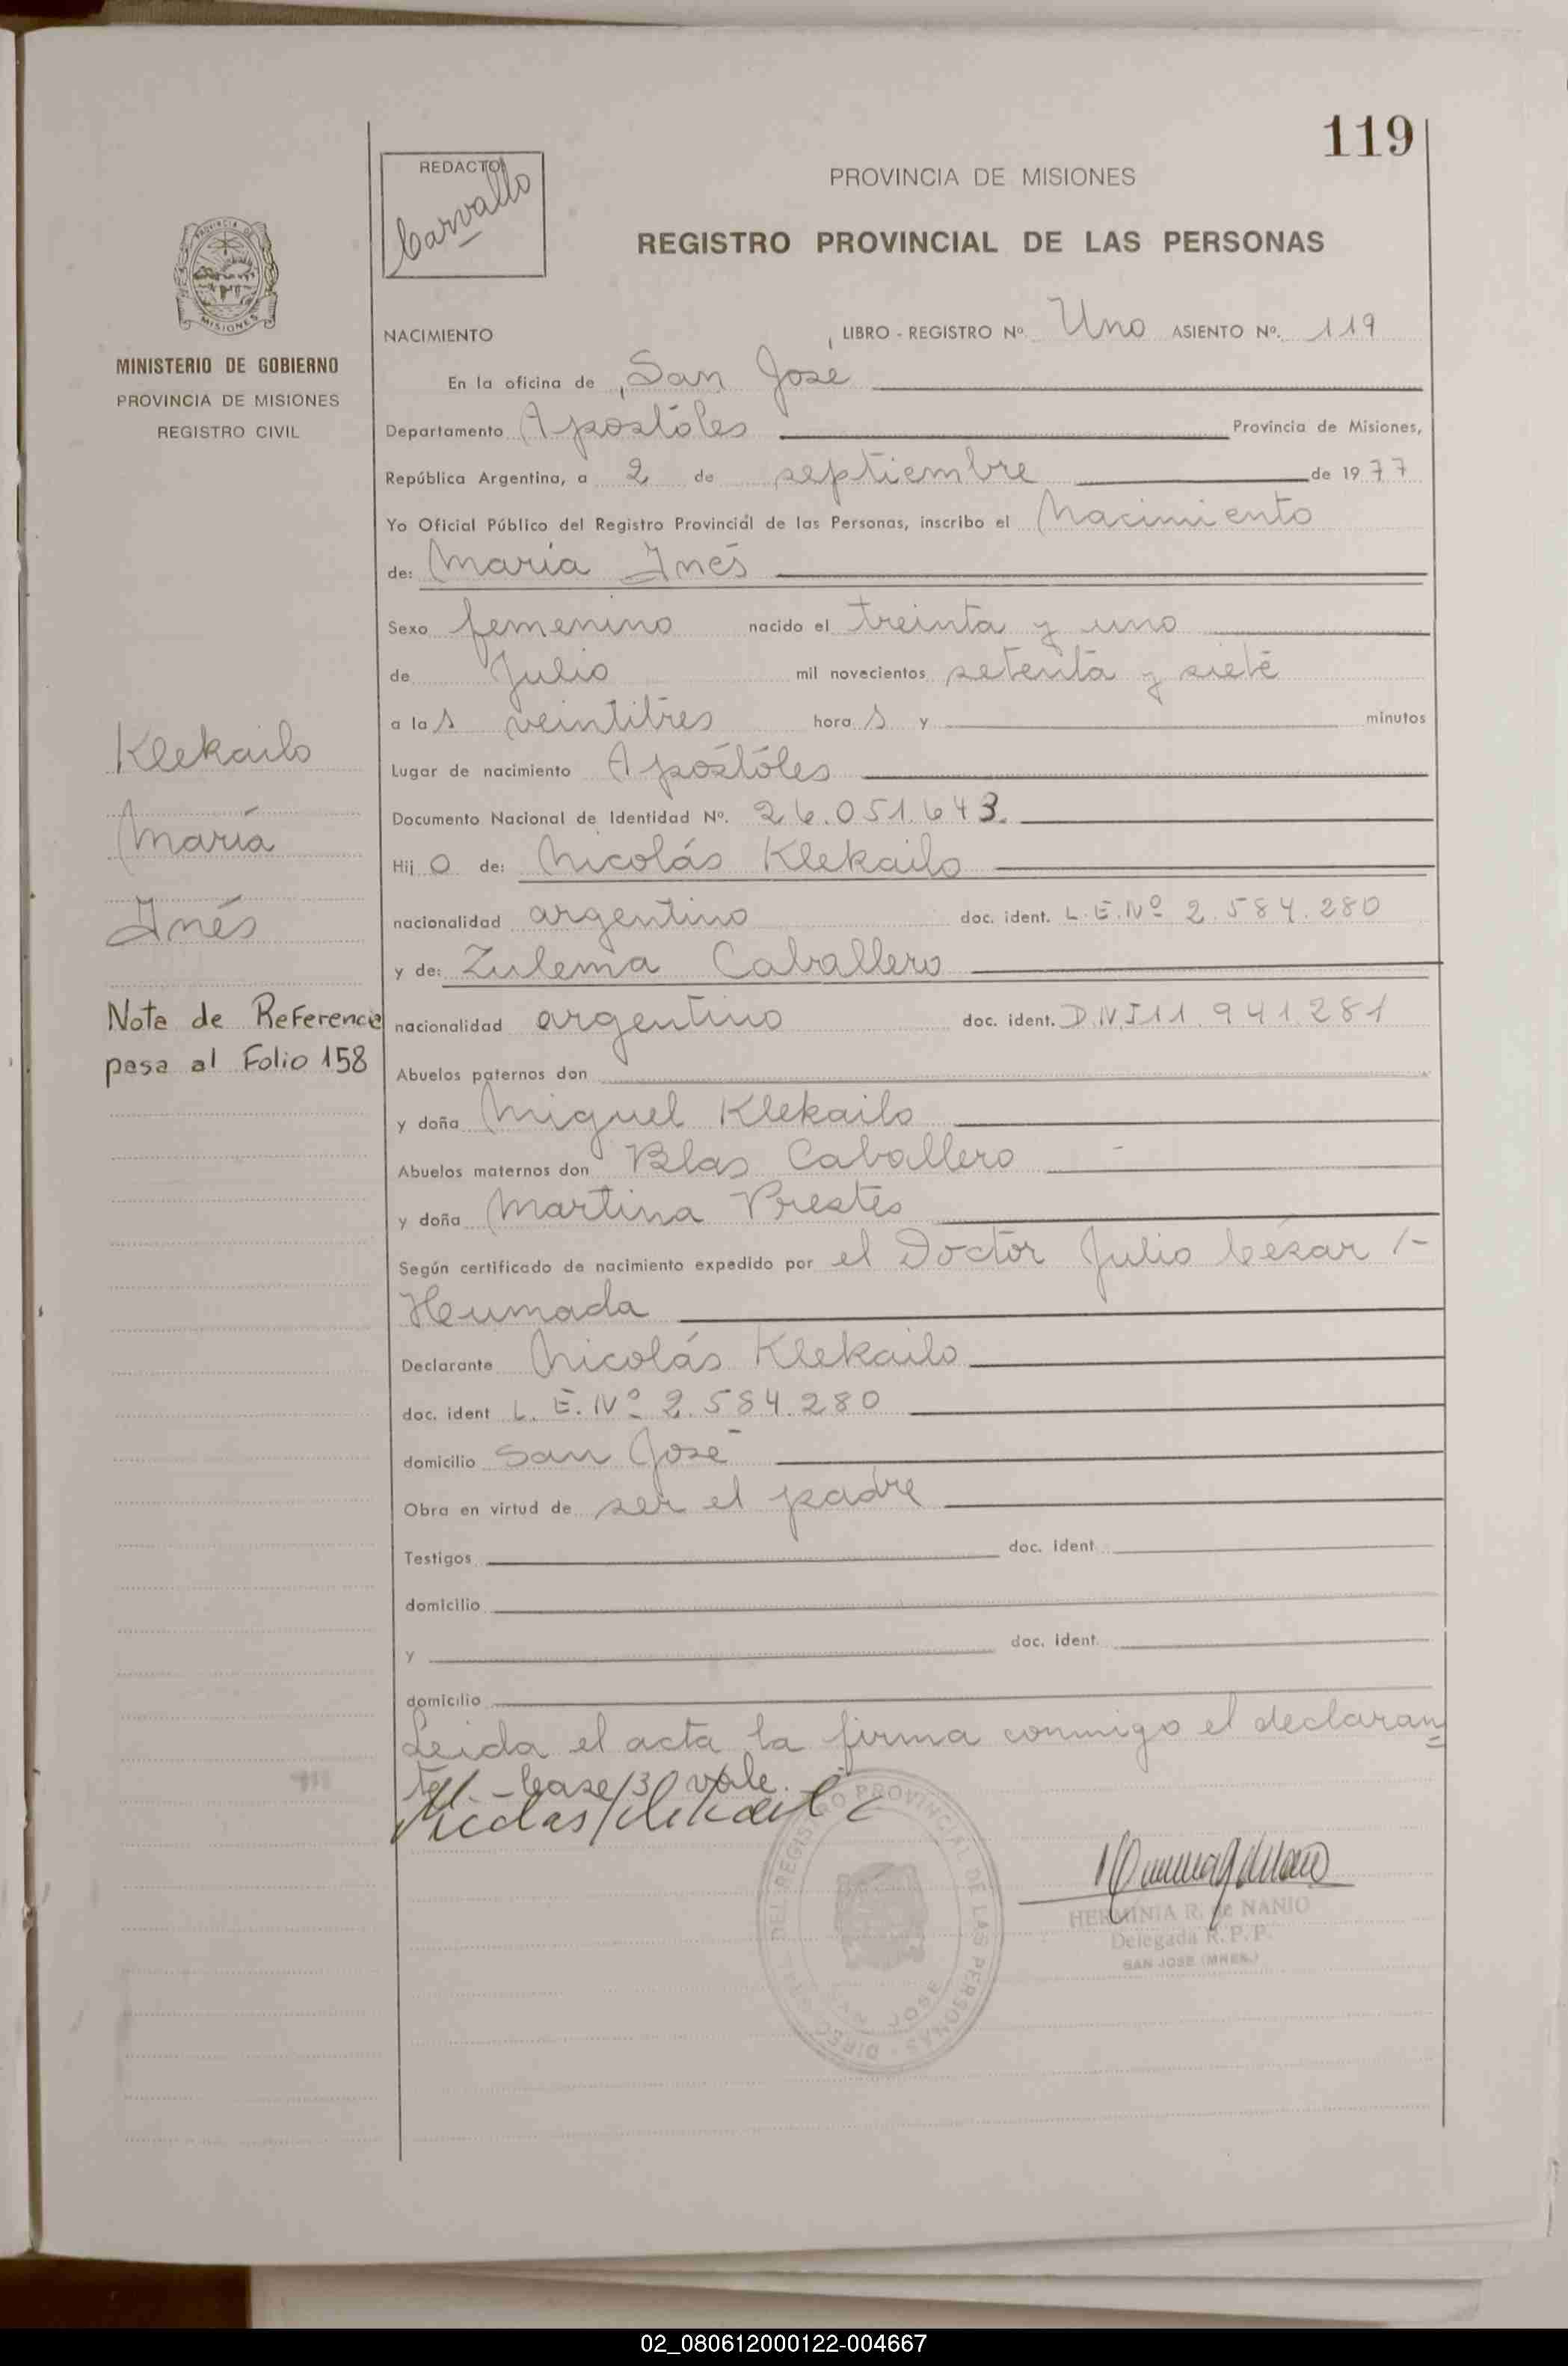 119
REDACTO
Carvallo
PROVINCIA DE MISIONES
REGISTRO PROVINCIAL DE LAS PERSONAS
PROVINCIA DE
MISIONES
MINISTERIO DE GOBIERNO
PROVINCIA DE MISIONES
REGISTRO CIVIL
Klekailo
María
Inés
Nota de Referencia
pasa al Folio 158
NACIMIENTO LIBRO - REGISTRO Nº. Uno ASIENTO Nº. 119
En la oficina de San Jose
Departamento Apostóles Provincia de Misiones,
República Argentina, a 2 de septiembre de 1977
Yo Oficial Público del Registro Provincial de las Personas, inscribo el Nacimiento
de: María Inés
Sexo femenino nacido el treinta y uno
de Julio mil novecientos setenta y siete
a las veintitres horas y minutos
Lugar de nacimiento Apóstóles
Documento Nacional de Identidad Nº. 26.051.643.
Hijo de: Nicolás Klekailo
nacionalidad argentino doc. ident. L.E.Nº 2.584.280
y de: Zulema Caballero
nacionalidad argentino doc. ident. D.N.I 11.941.281
Abuelos paternos don
y doña Miguel Klekailo
Abuelos maternos don Blas Caballero
y doña Martina Prestes
Según certificado de nacimiento expedido por el Doctor Julio César /-
Humada
Declarante Nicolás Klekailo
doc. ident L.E.Nº 2.584.280
domicilio San José
Obra en virtud de ser el padre
Testigos doc. ident
domicilio
y doc. ident.
domicilio
Leida el acta la firma conmigo el declaran
te/.- /3/ vale.
Nicolas Klekailo
DIREC. GRAL. DEL REGISTRO PROVINCIAL DE LAS PERSONAS
SAN JOSE
HERMINIA R. de NANIO
Delegada R.P.P.
SAN JOSE (MNES.)
02_080612000122-004667